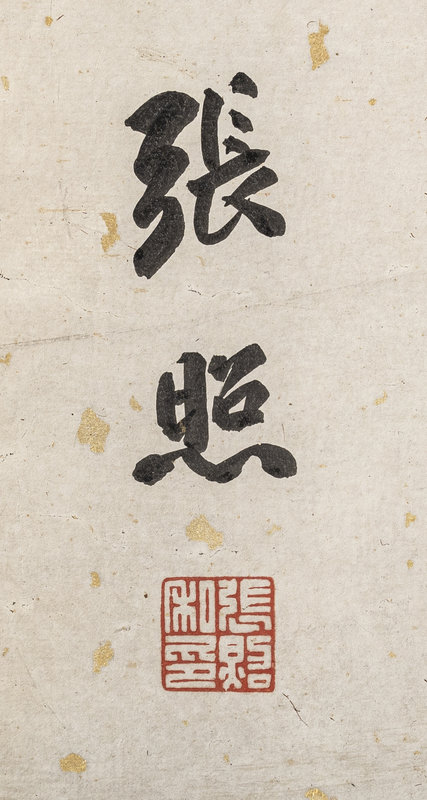 張照
張照私印